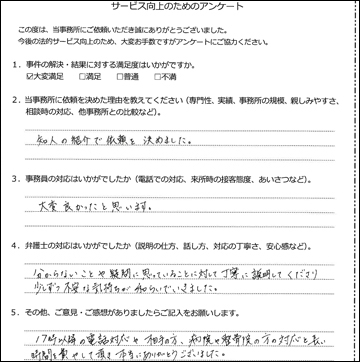 サービス向上のためのアンケート
この度は、当事務所にご依頼いただき誠にありがとうございました。
今後の法的サービス向上のため、大変お手数ですがアンケートにご協力ください。
1．事件の解決・結果に対する満足度はいかがですか。
☑大変満足 □満足 □普通 □不満
2．当事務所に依頼を決めた理由を教えてください（専門性、実績、事務所の規模、親しみやすさ、
相談時の対応、他事務所との比較など）。
知人の紹介で依頼を決めました。
3．事務員の対応はいかがでしたか（電話での対応、来所時の接客態度、あいさつなど）。
大変良かったと思います。
4．弁護士の対応はいかがでしたか（説明の仕方、話し方、対応の丁寧さ、安心感など）。
分からないことや疑問に思っていることに対して丁寧に説明してくださり
少しずつ不安な気持ちが和らいでいきました。
5．その他、ご意見・ご感想がありましたらご記入をお願いします。
17時以降の電話対応や相手の方、病院や整骨院の方の対応と長い
時間を費やして頂き本当にありがとうございました。